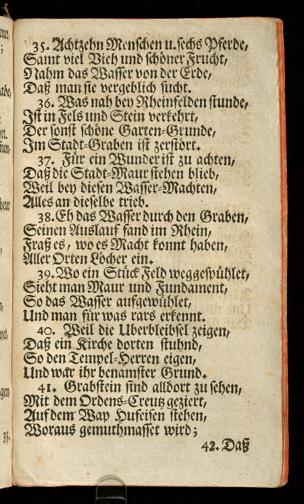 35. Achtzehn Menschen u. sechs Pferde,
Samt viel Vieh und schöner Frucht,
Nahm das Wasser von der Erde,
Daß man sie vergeblich sucht.
36. Was nah bey Rheinfelden stunde,
Ist in Fels und Stein verkehrt,
Der sonst schöne Garten-Grunde,
Im Stadt-Graben ist zerstört.
37. Für ein Wunder ist zu achten,
Daß die Stadt-Maur stehen blieb,
Weil bey diesen Wasser-Machten,
Alles an dieselbe trieb.
38. Eh das Wasser durch den Graben,
Seinen Auslauf fand im Rhein,
Fraß es, wo es Macht konnt haben,
Aller Orten Löcher ein.
39. Wo ein Stück Feld weggespühlet,
Sieht man Maur und Fundament,
So das Wasser aufgewühlet,
Und man für was rars erkennt.
40. Weil die Uberbleibsel zeigen,
Daß ein Kirche dorten stuhnd,
So den Tempel-Herren eigen,
Und war ihr benamster Grund.
41. Grabstein sind alldort zu sehen,
Mit dem Ordens-Creutz geziert,
Auf dem Wap Hufeisen stehen,
Woraus gemuthmasset wird;
42. Daß